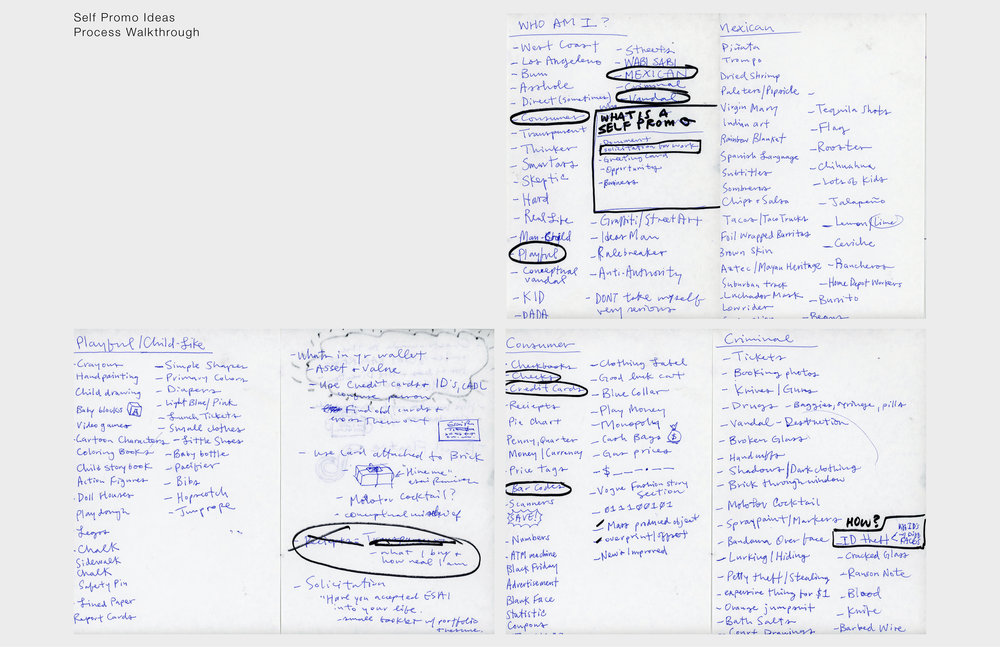 Self Promo Ideas
Process Walkthrough
WHO AM I?
- West Coast
- Los Angeleno
- Bum
- Asshole
- Direct (sometimes)
- Consumer
- Transparent
- Thinker
- Smartass
- Skeptic
- Hard
- Real Life
- Man-Child
- Playful
- Conceptual
vandal
- KID
- DADA
- Streets
- WABI SABI
- MEXICAN
- Criminal
- Vandal
WHAT IS A
SELF PROMO
- Document
- Solicitation for work
- Greeting Card
- Opportunity
- Business
- Graffiti/Street Art
- Ideas Man
- Rulebreaker
- Anti-Authority
- DONT take myself
very serious
Mexican
Piñata
Trompo
Dried Shrimp
Paletero/Popsicle
Virgin Mary
Indian art
Rainbow Blanket
Spanish Language
Subtitles
Sombreros
Chips + Salsa
Tacos/Taco Trucks
Foil Wrapped Burritos
Brown Skin
Aztec/Mayan Heritage
Suburban truck
Luchador Mask
Lowrider
- Tequila Shots
- Flag
- Rooster
- Chihuahua
- Lots of Kids
- Jalapeño
- Lemon/Lime
- Ceviche
- Rancheros
- Home Depot Workers
- Burrito
- Beans
Playful/Child-Like
Crayons
Handpainting
Child drawing
Baby blocks A
Video games
Cartoon Characters
Coloring Books
Child storybook
Action Figures
Doll Houses
Playdough
Legos
Chalk
Sidewalk
Chalk
Safety Pin
Lined Paper
Report Cards
- Simple Shapes
- Primary Colors
- Diapers
- Light Blue/Pink
- Lunch Tickets
- Small clothes
- Little Shoes
- Baby bottle
- Pacifier
- Bibs
- Hopscotch
- Jumprope
- Whats in yr wallet
- Asset + Value
- Use Credit cards + ID's, CADL
- Find old cards +
- Use card attached to Brick
- Molotov Cocktail?
- conceptual
- what I buy +
how real I am
- Solicitation
"Have you accepted ESAI
into your life.
- small booklet w/ portfolio
Consumer
- Checkbooks
- Checks
- Credit Cards
- Reciepts
Pie Chart
Penny, Quarter
Money/Currency
- Price Tags
- Bar Codes
- Scanners
SAVE!
- Numbers
- ATM machine
Black Friday
Advertisement
Blank Face
Statistic
Coupons
- Clothing Label
- Good luck cat
- Blue Collar
- Play Money
- Monopoly
- Cash Bags $
- Gas prices
- $
- Vogue Fashion story
section
- 011100101
Mass produced object
overprint/offset
- New + Improved
Criminal
- Tickets
- Booking photos
- Knives/Guns
- Drugs - Baggies, syringe, pills
- Vandal - Destruction
- Broken Glass
- Handcuffs
- Shadows/Dark clothing
- Brick through window
- Molotov Cocktail
- Spraypaint/Markers
- Bandana Over face
- Lurking/Hiding
- Petty theft/Stealing
- expensive thing for $1
- Orange jumpsuit
- Bath Salts
- Court Drawings
HOW?
- ID theft
- Cracked Glass
- Ransom Note
- Blood
- Knife
- Barbed Wire